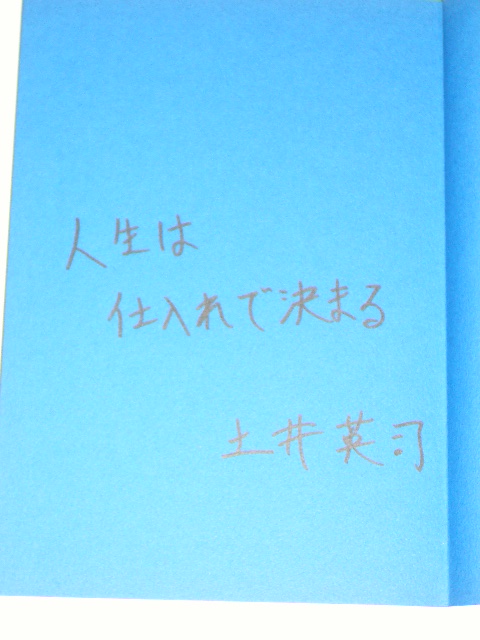 人生は
仕入れで決まる
土井英司